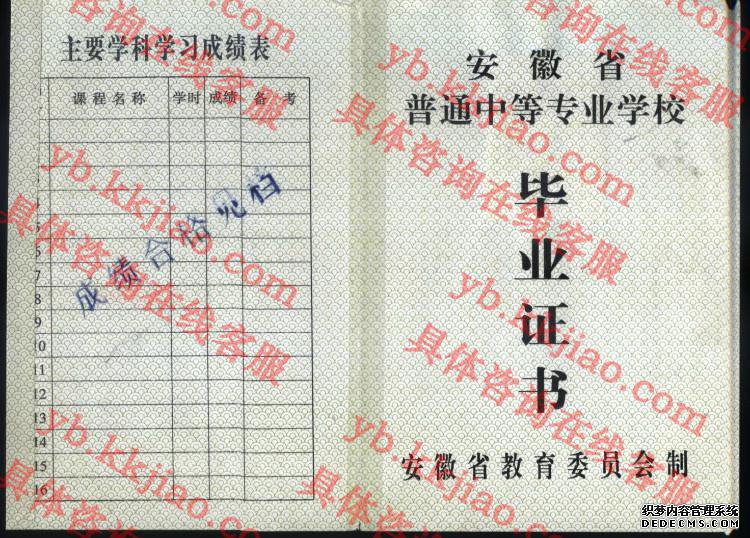 主要学科学习成绩表
课程名称 学时 成绩 备考
5
6
7
8
9
10
11
12
13
14
15
16
成绩合格见档
安徽省
普通中等专业学校
毕业证书
安徽省教育委员会制
yb.kkjiao.com
具体咨询在线客服
yb.kkjiao.com
具体咨询在线客服
yb.kkjiao.com
具体咨询在线客服
yb.kkjiao.com
具体咨询在线客服
yb.kkjiao.com
具体咨询在线客服
yb.kkjiao.com
具体咨询在线客服
织梦内容管理系统
DEDECMS.COM